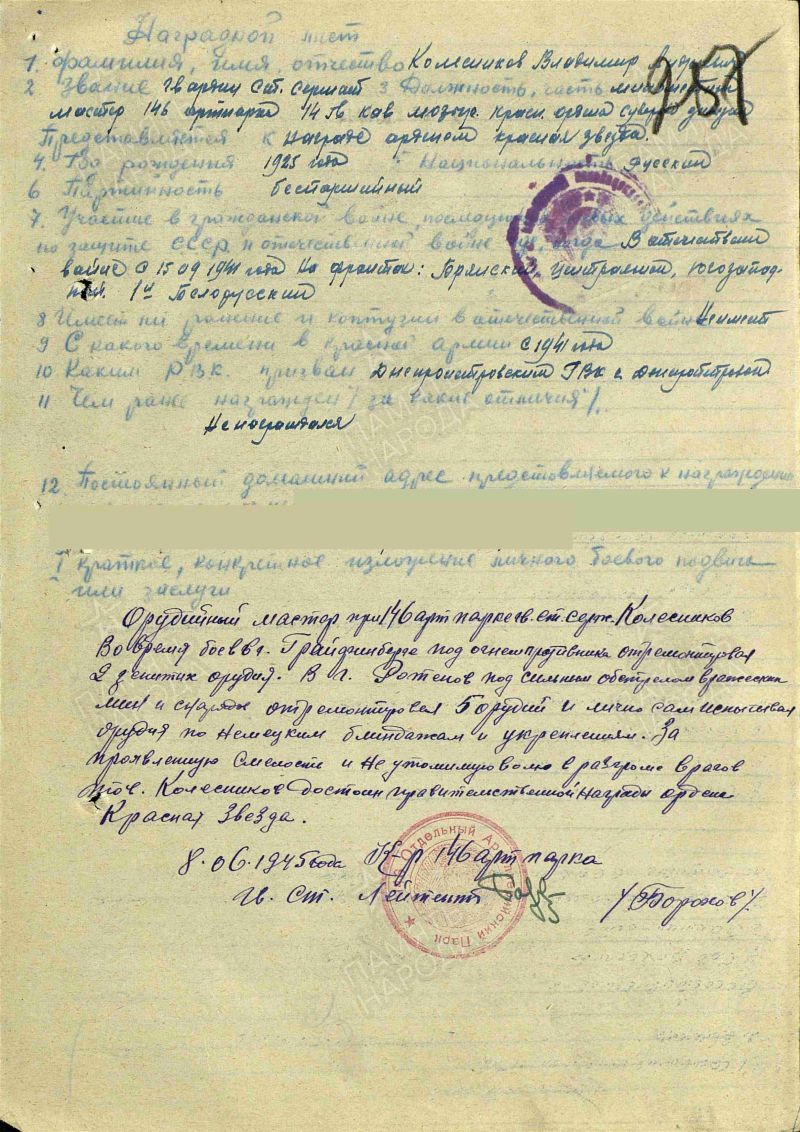 Наградной лист
1. Фамилия, имя, отчество Колесников Владимир
2 Звание гвардии Ст. сержант 3 Должность, часть
мастер 146 артпарка 14 гв кав мозыр. красн. ордена
Представляется к награде орденом красная звезда.
4. Год рождения 1925 года Национальность русский
6 Партийность беспартийный
7. Участие в гражданской войне, последующих боевых действиях
по защите СССР и отечественной войне где, когда В отечествен
войне с 15 09 1941 года На фронтах: Брянский, Центральной, Югозапад-
ный. 1й Белодусский
8 Имеет ли ранение и контузии в отечественной войне Не имеет
9 С какого времени в красной армии с 1941 года
10 Каким РВК. призван Днепропетровским ГВК г. Днепропетровск
11 Чем ранее награжден /за какие отличия/.
Не награждался
12. Постоянный домашний адрес представляемого к награждению
I краткое, конкретное изложение личного боевого подвига
или заслуги
Орудийный мастер при 146 арт парке гв. ст. серж. Колесников
Во время боев в г. Грайфенберге под огнем противника отремонтировал
2 зенитных орудия. В г. под сильным обстрелом вражеских
мин и снарядов отремонтировал 5 орудий и лично сам испытывал
орудия по Немецким блиндажам и укреплениям. За
проявленную Смелость и Не утомимую волю в разгроме врагов
тов. Колесников достоин правительственной Награды ордена
Красная Звезда.
8.06.1945 года К-р 146 арт парка
Гв. Ст. Лейтент
Отдельный Артиллерийский Парк
257
ПАМЯТЬ НАРОДА